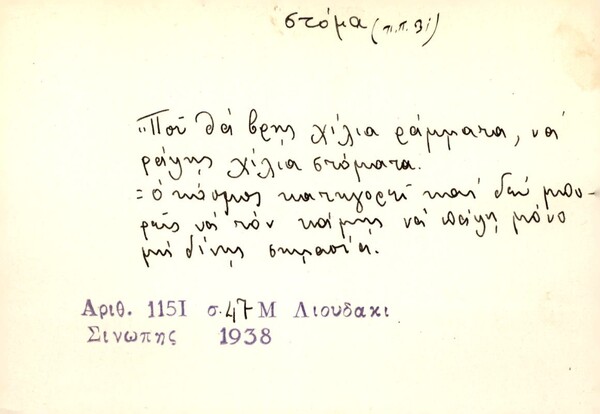 στόμα (π.π. 3)
"Ποῦ θὰ βρῇς χίλια ράμματα, νὰ
ράψῃς χίλια στόματα.
= ὁ κόσμος κατηγορεῖ καὶ δὲν μπο-
ρεῖς νὰ τὸν κάμῃς νὰ πάψῃ μόνο
μὴ δίνῃς σημασία.
Αριθ. 1151 σ. 47 Μ Λιουδακι
Σινωπης 1938